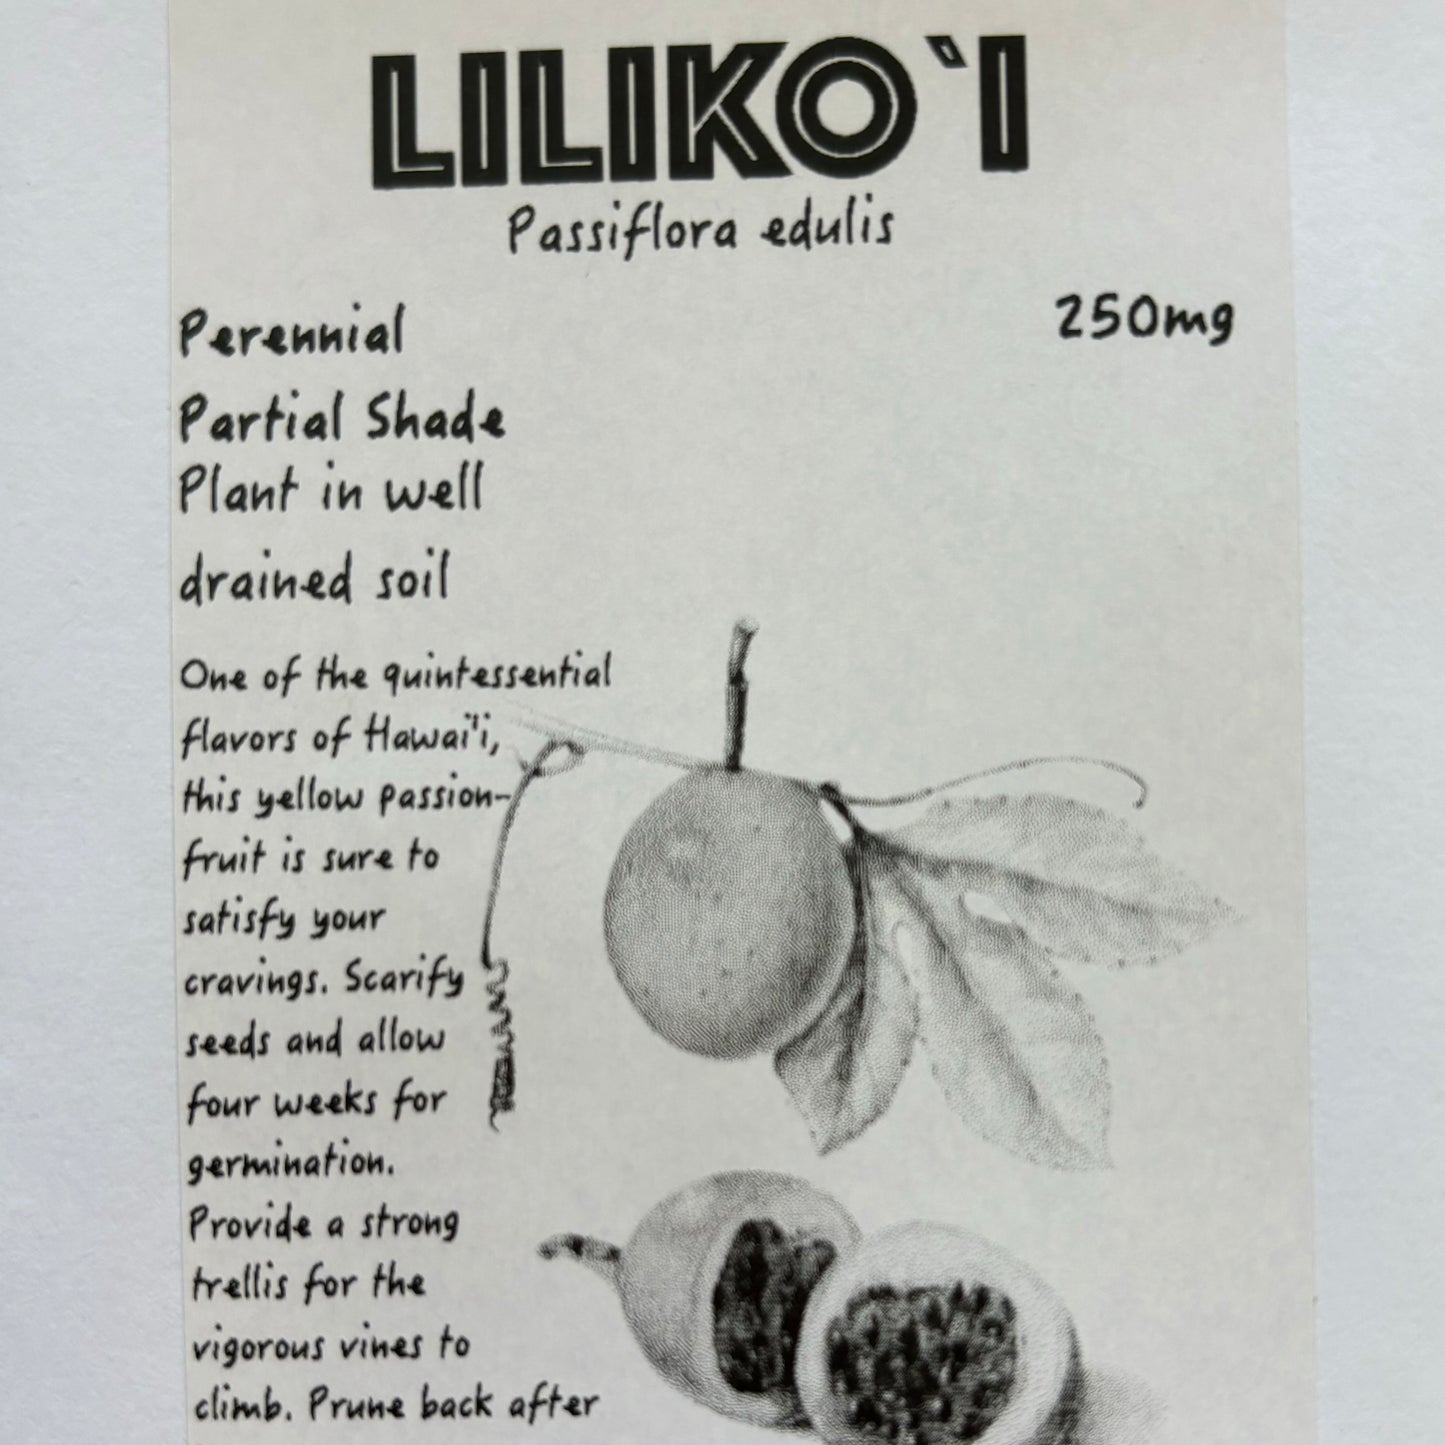 LILIKO`I
Passiflora edulis
Perennial
250mg
Partial Shade
Plant in well
drained soil
One of the quintessential
flavors of Hawai'i,
this yellow passion-
fruit is sure to
satisfy your
cravings. Scarify
seeds and allow
four weeks for
germination.
Provide a strong
trellis for the
vigorous vines to
climb. Prune back after